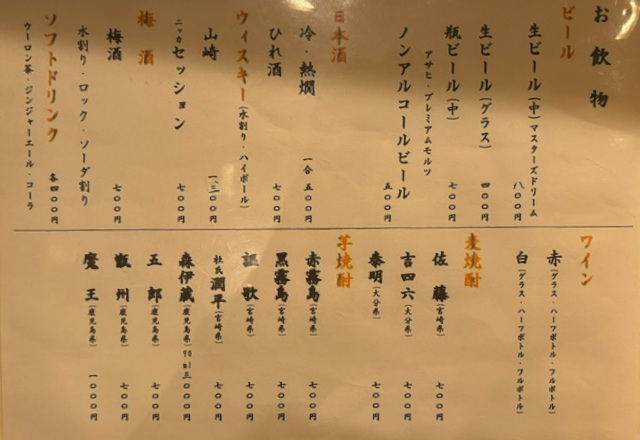 お飲物
ビール
生ビール(中)マスターズドリーム 八〇〇円
生ビール(グラス) 四〇〇円
瓶ビール(中) 七〇〇円
アサヒ・プレミアムモルツ
ノンアルコールビール 五〇〇円
日本酒
冷・熱燗 一合 五〇〇円
ひれ酒 七〇〇円
ウィスキー(水割り・ハイボール)
山崎 一、三〇〇円
ニッカ セッション 七〇〇円
梅酒
梅酒 七〇〇円
水割り・ロック・ソーダ割り
ソフトドリンク 各四〇〇円
ウーロン茶・ジンジャーエール・コーラ
ワイン
赤(グラス・ハーフボトル・フルボトル)
白(グラス・ハーフボトル・フルボトル)
麦焼酎
佐藤(宮崎県) 七〇〇円
吉四六(大分県) 七〇〇円
泰明(大分県) 七〇〇円
芋焼酎
赤霧島(宮崎県) 七〇〇円
黒霧島(宮崎県) 七〇〇円
謳歌(宮崎県) 七〇〇円
杜氏潤平(宮崎県) 七〇〇円
森伊蔵(鹿児島県)90ml 三〇〇〇円
五郎(鹿児島県) 七〇〇円
甑州(鹿児島県) 七〇〇円
魔王(鹿児島県) 一〇〇〇円